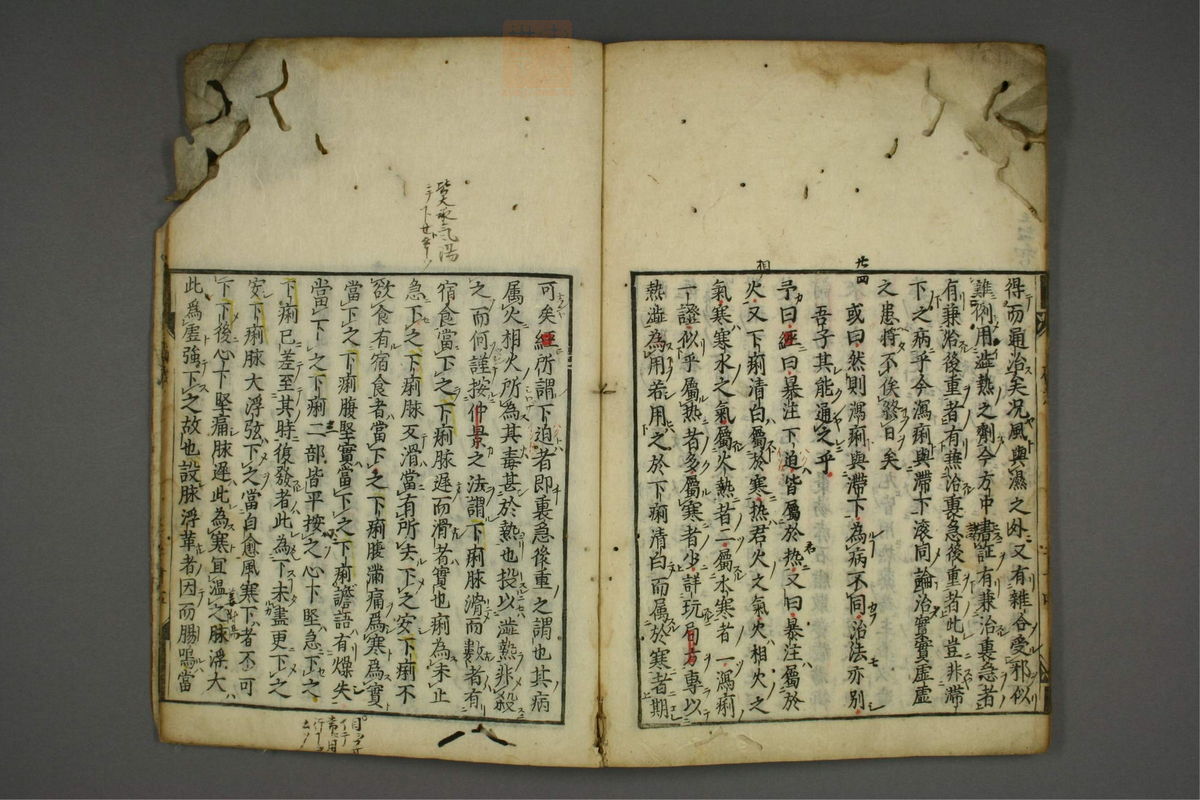 得而通治矣况風與濕之外又有雜合受邪似
難例用澁熱之劑今方中書証有兼治裏急者
有兼治後重者有兼治裏急後重者此豈非滯
下之病乎今瀉痢與滯下滚同論治實實虛虛
之患將不俟發日矣
或曰然則瀉痢與滯下為病不同治法亦別
吾子其能通之乎
予曰經曰暴注下迫皆屬於熱又曰暴注屬於
火又下痢清白屬於寒热君火之氣火相火之
氣寒寒水之氣屬火熱者二屬水寒者一瀉痢
一證似乎屬熱者多屬寒者少詳玩局方專以
熱澁為用若用之於下痢清白而属於寒者期
可矣經所謂下迫者即裏急後重之謂也其病
属火相火所為其毒甚於熱也投以澁熱非殺
之而何謹按仲景之法謂下痢脉滑而數者有
宿食當下之下痢脉遲而滑者實也痢為未止
急下之下痢脉反滑當有所去下之安下痢不
欲食有宿食者當下之下痢腹滿痛爲寒為實
當下之下痢腹堅實當下之下痢譫語有燥矢
當下之下痢二部皆平按之心下堅急下之
下痢已差至其時復發者此為下未盡更下之
安下痢脉大浮弦下之當自愈風寒下者不可
下下後心下堅痛脉遲此為寒宜温之脉浮大
此爲虚強下之故也設脉浮革者因而腸鳴當
皆大承氣湯
相